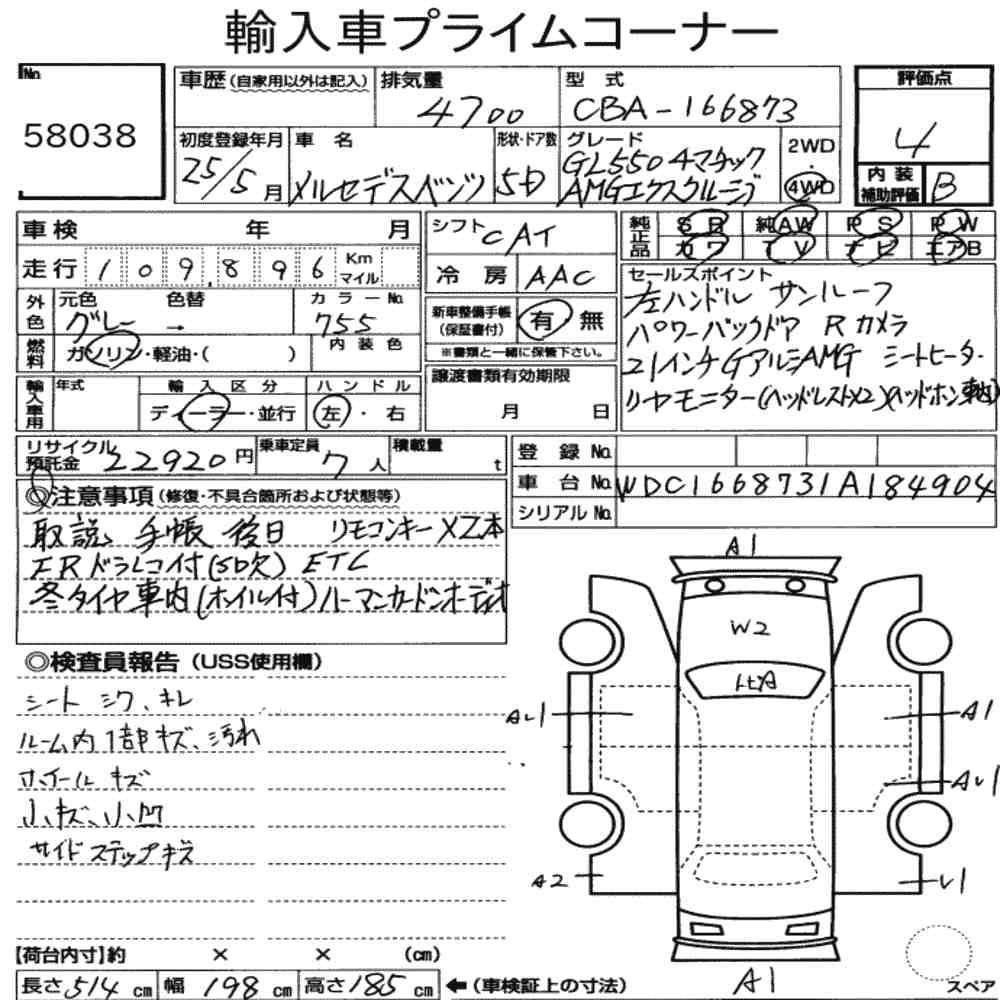 輸入車プライムコーナー
No.
58038
車歴(自家用以外は記入) 排気量 型式 評価点
4700 CBA-166873 4
初度登録年月 車名 形状・ドア数 グレード 2WD・4WD
25/5月 メルセデスベンツ 5D GL550 4マチック
AMGエクスクルーシブ
内装補助評価 B
車検 年 月 シフト CAT
走行 109,896 Km マイル 冷房 AAC
純正品 SR 純AW PS PW
カワ TV ナビ エアB
外色 元色 色替 カラーNo.
グレー → 755
燃料 ガソリン・軽油・( ) 内装色
新車整備手帳(保証書付) 有 無
※書類と一緒に保管下さい。
セールスポイント
左ハンドル サンルーフ
パワーバックドア Rカメラ
21インチGアルミAMG シートヒーター
リヤモニター(ヘッドレスト×2)(ヘッドホン車内)
輸入車用 年式 輸入区分 ハンドル
ディーラー・並行 左・右
譲渡書類有効期限
月 日
リサイクル預託金 22920円 乗車定員 7人 積載量 t
登録No.
車台No. WDC1668731A184904
シリアルNo.
◎注意事項(修復・不具合箇所および状態等)
取説、手帳 後日 リモコンキー×2本
FRドラレコ付(SD欠) ETC
冬タイヤ車内(ホイル付)ハーマンカードンオーディオ
◎検査員報告(USS使用欄)
シート シワ、キレ
ルーム内1部キズ、汚れ
ホイール キズ
小キズ、小凹
サイドステップキズ
A1
W2
ヒ
A
AU1
A1
AU1
A2
U1
A1
スペア
【荷台内寸】約 × × (cm)
長さ514cm 幅198cm 高さ185cm ←(車検証上の寸法)